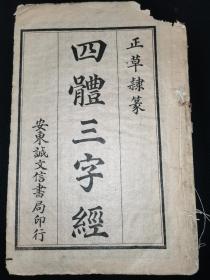 正草隸篆
四體三字經
安東誠文信書局印行